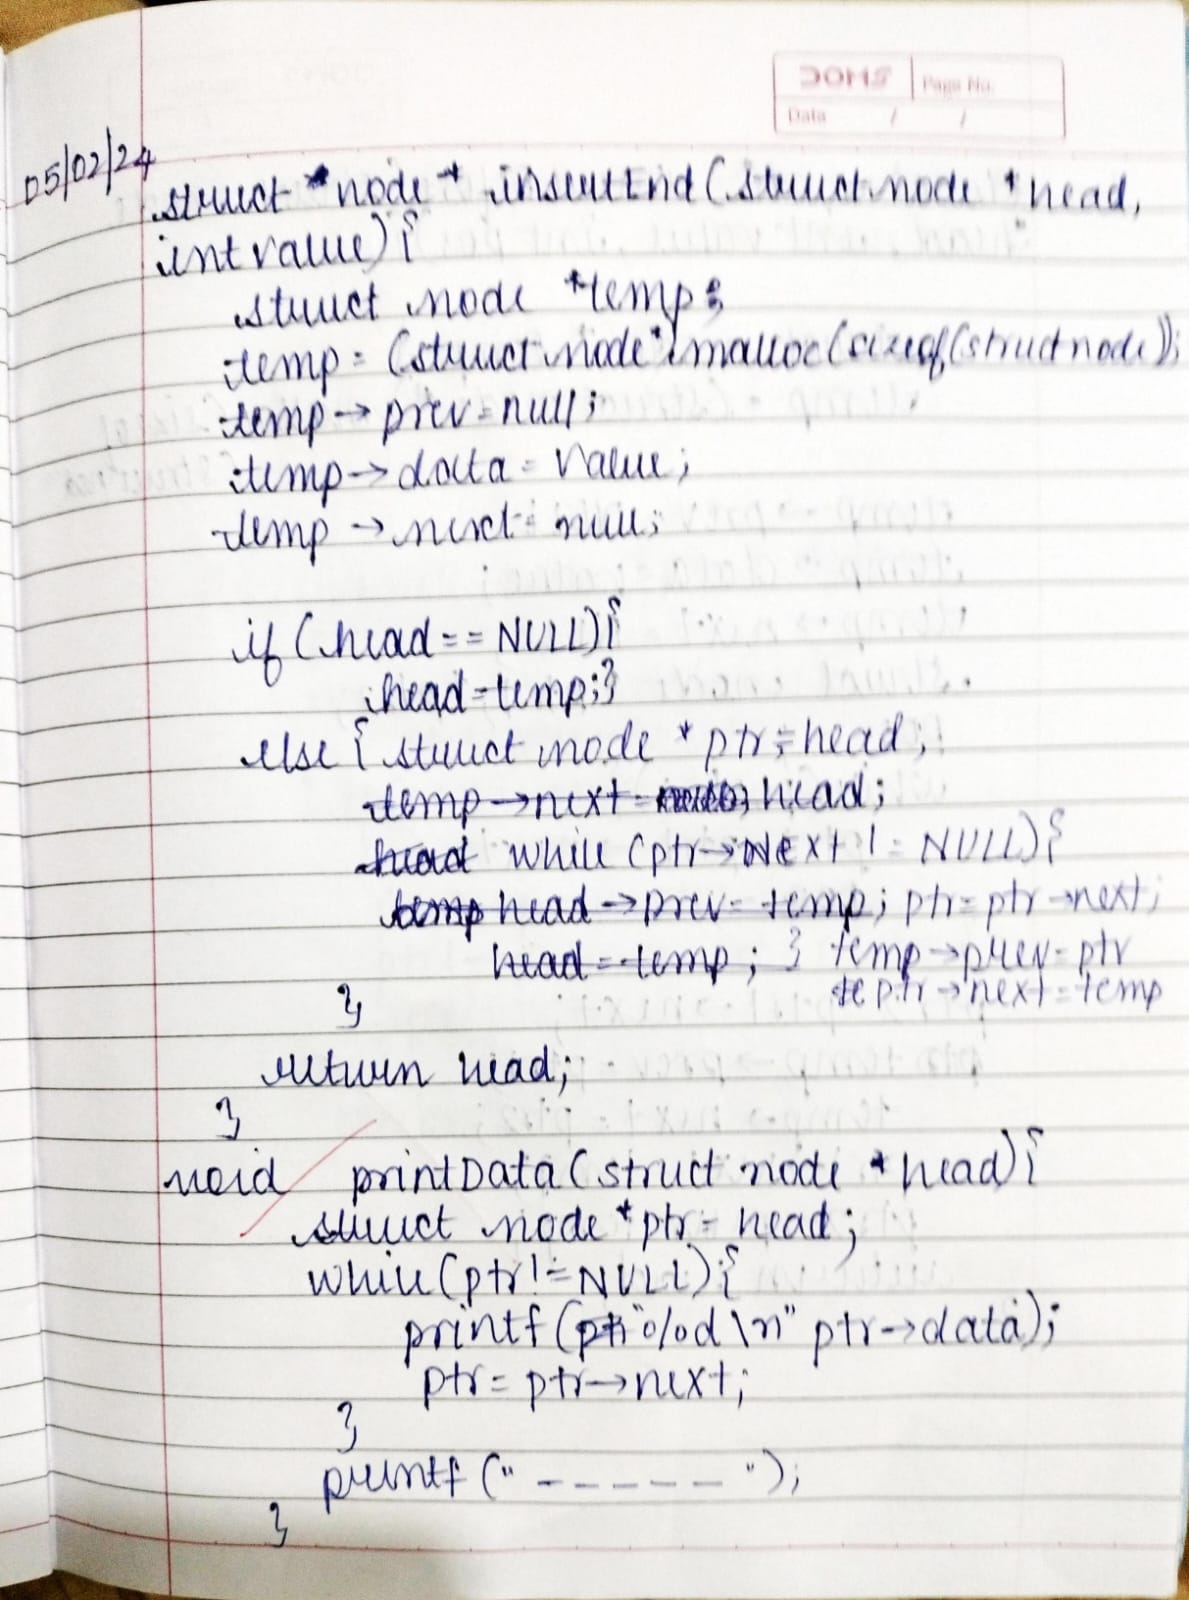 DOMS Page No.
Date / /
05/02/24
struct *node * insertEnd(struct node *head,
int value){
struct node *temp;
temp = (struct node*)malloc(sizeof(struct node));
temp→prev=null;
temp→data = value;
temp→next= null;
if (head==NULL){
head=temp;}
else { struct node *ptr=head;
temp→next= head;
head while (ptr→Next != NULL){
temp head→prev= temp; ptr=ptr→next;
head=temp; } temp→prev=ptr
te ptr→next=temp
}
return head;
}
void printData(struct node *head){
struct node *ptr= head;
while(ptr!=NULL){
printf("%d\n" ptr→data);
ptr= ptr→next;
}
printf("-----");
}